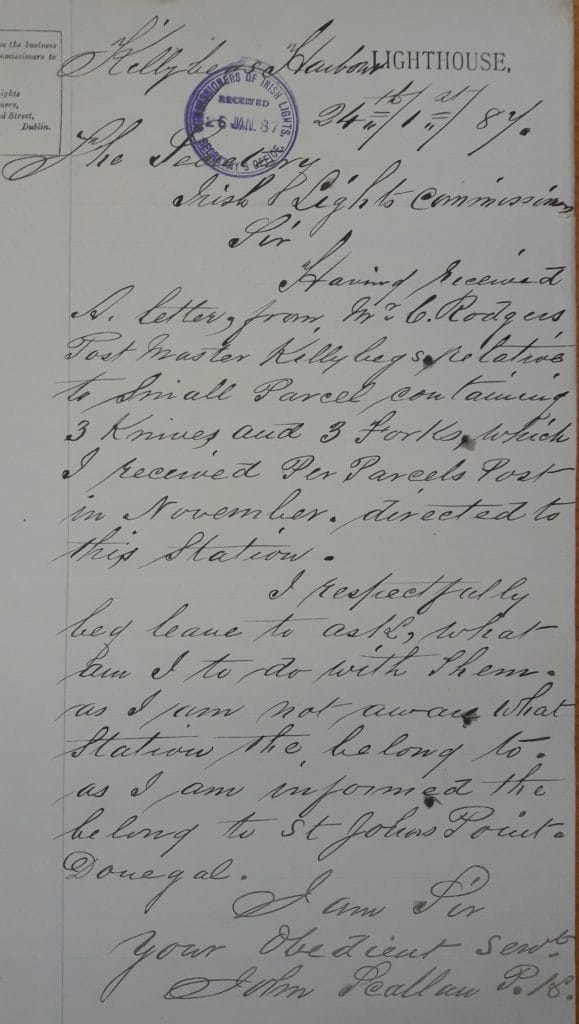 on the business
mmissioners to
ights
ners,
d Street,
Dublin.
Killybegs Harbour LIGHTHOUSE,
COMMISSIONERS OF IRISH LIGHTS.
RECEIVED
26 JAN. 87
SECRETARY'S OFFICE.
24th/1st/87.
The Secretary
Irish Lights Commissioners
Sir
Having received
A. letter, from Mr. C. Rodgers
Post Master Killybegs, relative
to Small Parcel containing
3 Knives and 3 Forks, which
I received Per Parcels Post
in November. directed to
this Station.
I respectfully
beg leave to ask, what
am I to do with Them.
as I am not aware what
Station the belong to.
as I am informed the
belong to St Johns Point.
Donegal.
I am Sir
your Obedient Servt.
John Scallan P. K.